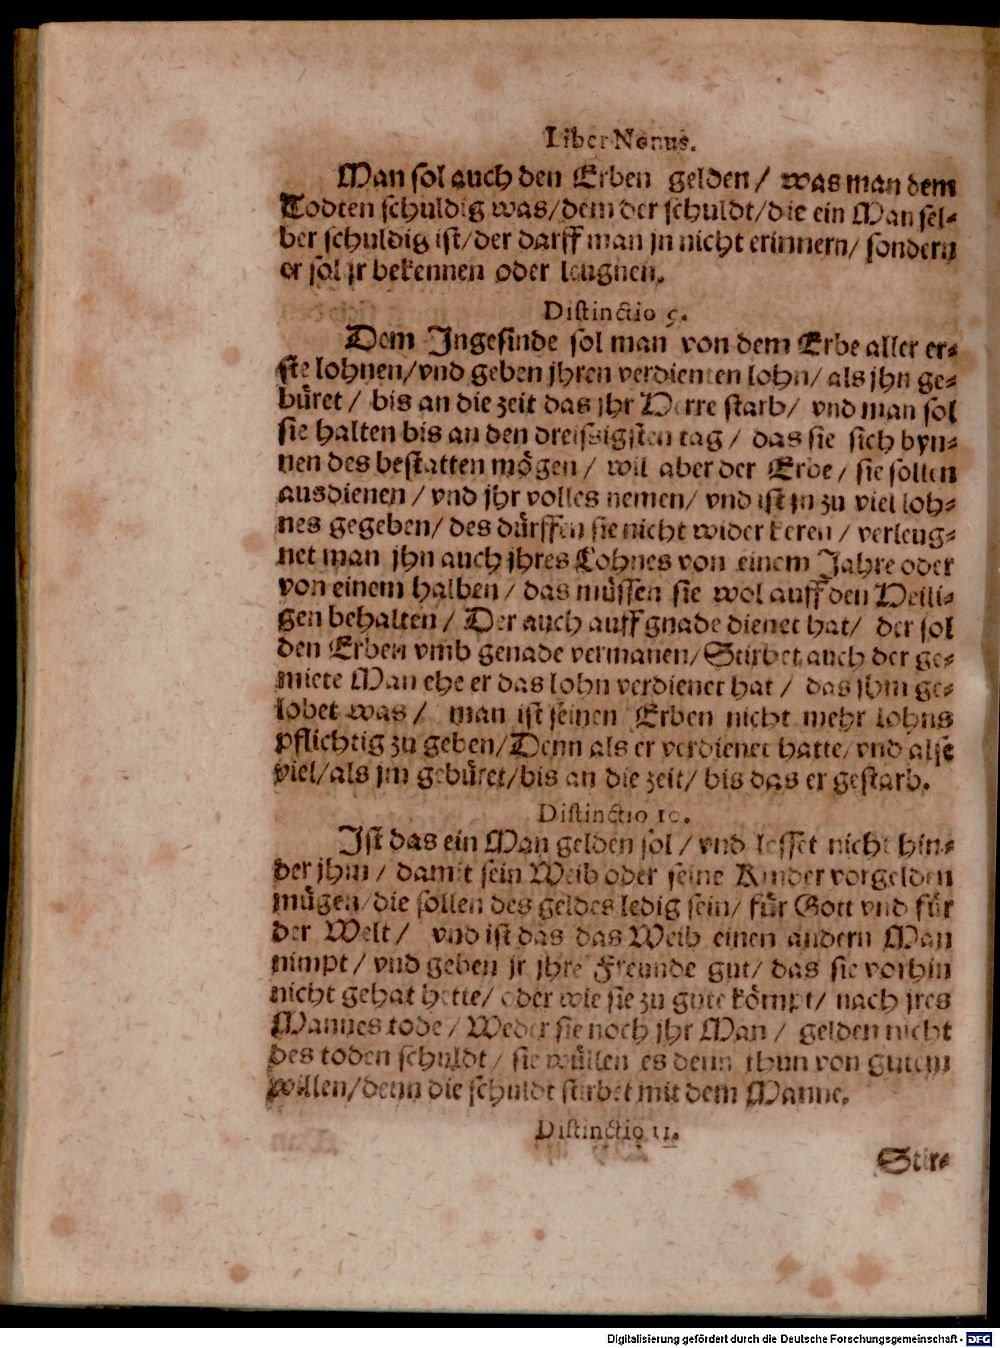 Liber Nonus.
Man sol auch den Erben gelden / was man dem
Todten schuldig was/dem der schuldt/die ein Man sel-
ber schuldig ist/der darff man jn nicht erinnern/ sondern
er sol jr bekennen oder leugnen.
Distinctio 9.
Dem Ingesinde sol man von dem Erbe aller er-
ste lohnen/vnd geben jhren verdienten lohn/ als jhn ge-
büret / bis an die zeit das jhr Herre starb/ vnd man sol
sie halten bis an den dreissigsten tag / das sie sich byn-
nen des bestatten mögen / wil aber der Erbe / sie sollen
ausdienen / vnd jhr volles nemen/ vnd ist jn zu viel loh-
nes gegeben/ des dürffen sie nicht wider keren / verleug-
net man jhn auch jhres Lohnes von einem Jahre oder
von einem halben / das müssen sie wol auff den Heili-
gen behalten / Der auch auff gnade dienet hat/ der sol
den Erben vmb genade vermanen/Stirbet auch der ge-
miete Man ehe er das lohn verdienet hat / das jhm ge-
lobet was / man ist seinen Erben nicht mehr lohns
pflichtig zu geben/Denn als er verdienet hatte/vnd alse
viel/als jm gebüret/bis an die zeit/ bis das er gestarb.
Distinctio 10.
Ist das ein Man gelden sol / vnd lesset nicht hin-
der jhm / damit sein Weib oder seine Kinder vorgelden
mügen/die sollen des geldes ledig sein/ für Gott vnd für
der Welt / vnd ist das das Weib einen andern Man
nimpt / vnd geben jr jhre Freunde gut/ das sie vorhin
nicht gehat hette/ oder wie sie zu gute kömpt/ nach jres
Mannes tode / Weder sie noch jhr Man / gelden nicht
des toden schuldt / sie wüllen es denn thun von gutem
willen/denn die schuldt sterbet mit dem Manne.
Distinctio 11.
Stir-
Digitalisierung gefördert durch die Deutsche Forschungsgemeinschaft - DFG